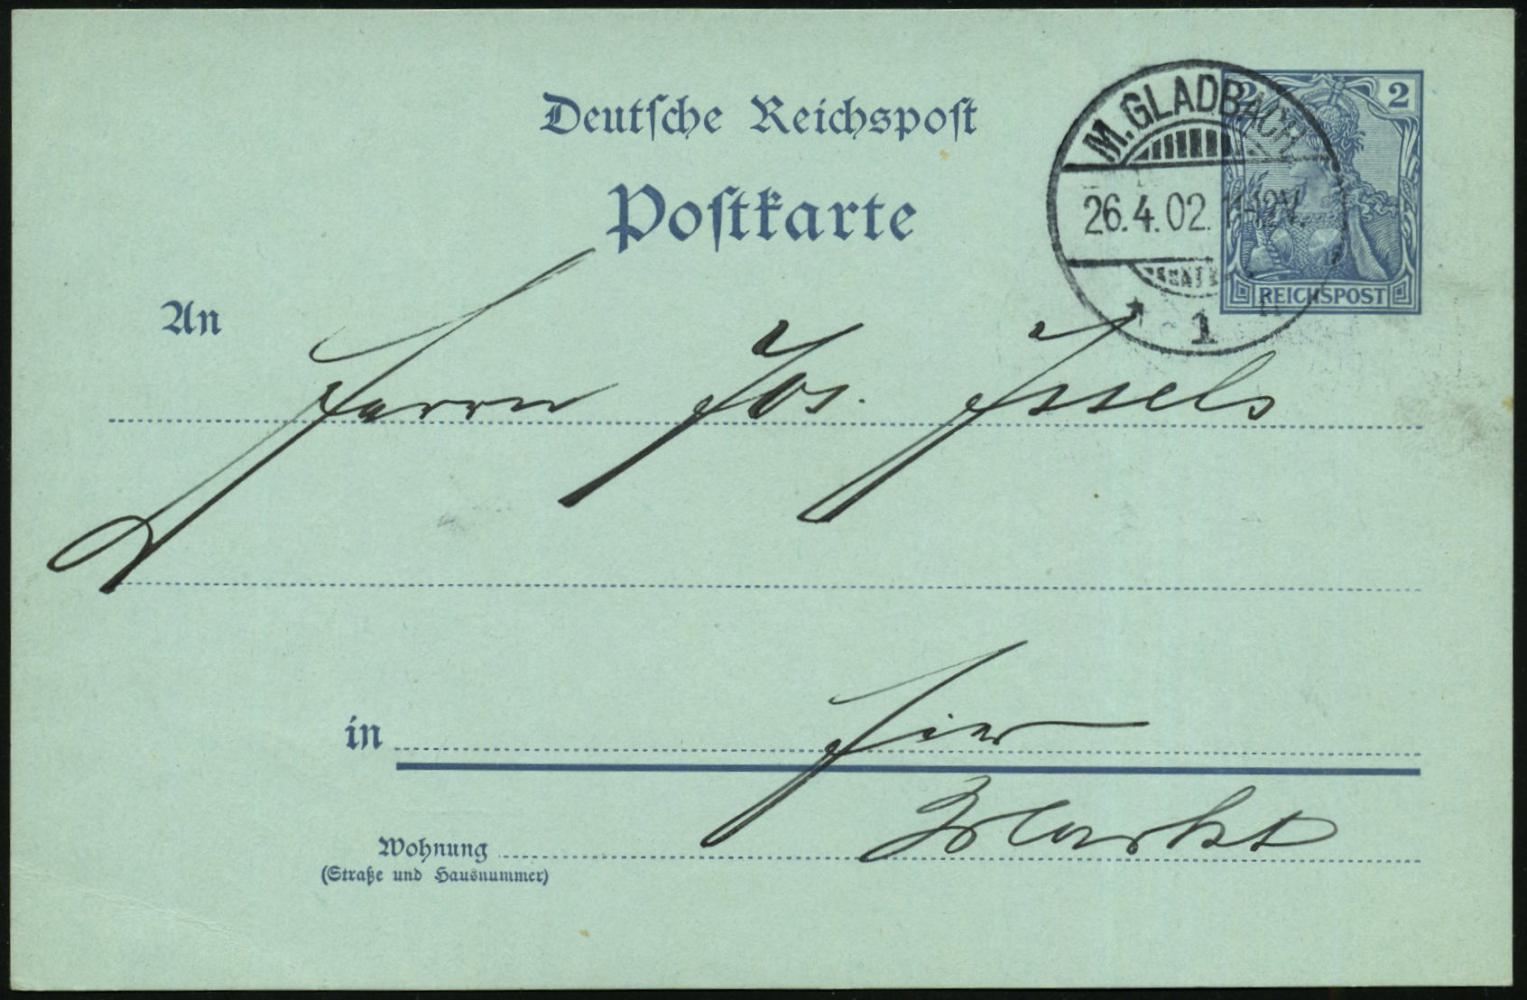 Deutsche Reichspost
Postkarte
2 2
REICHSPOST
M. GLADBACH
26.4.02. 11-12V.
* 1
An
Herrn Jos. Issels
in Hier
Wohnung Markt
(Straße und Hausnummer)